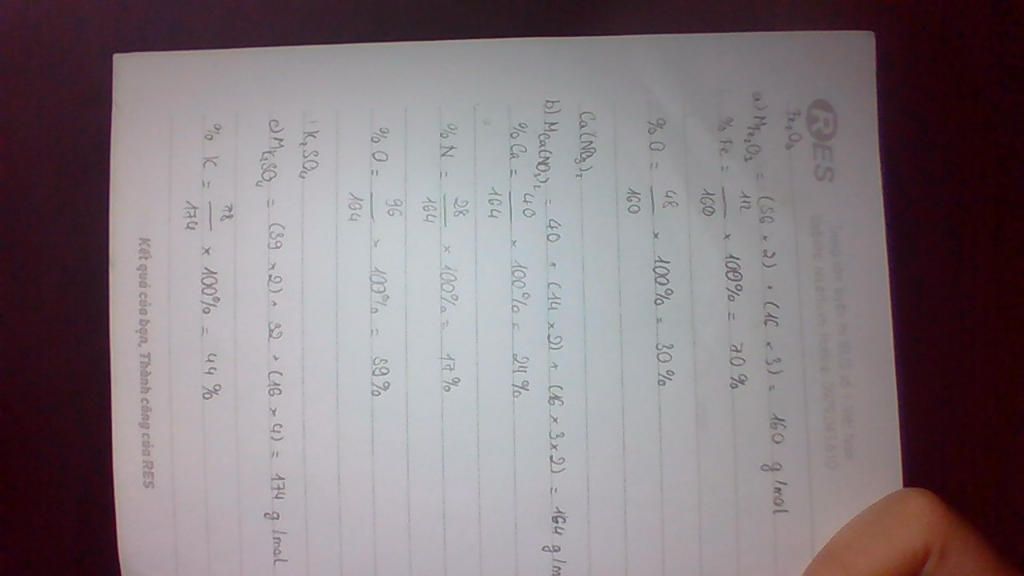 RES
Fe₂O₃
a) M Fe₂O₃ = (56 × 2) + (16 × 3) = 160 g/mol
% Fe = 112/160 × 100% = 70%
% O = 48/160 × 100% = 30%
Ca(NO₃)₂
b) M Ca(NO₃)₂ = 40 + (14 × 2) + (16 × 3 × 2) = 164 g/m
% Ca = 40/164 × 100% = 24%
% N = 28/164 × 100% = 17%
% O = 96/164 × 100% = 59%
K₂SO₄
c) M K₂SO₄ = (39 × 2) + 32 + (16 × 4) = 174 g/mol
% K = 78/174 × 100% = 44%
Kết quả của bạn, Thành công của RES